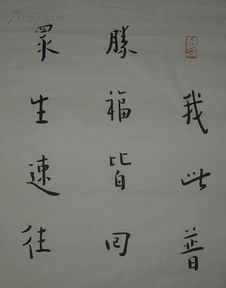 我此普
勝福皆回
眾生速往